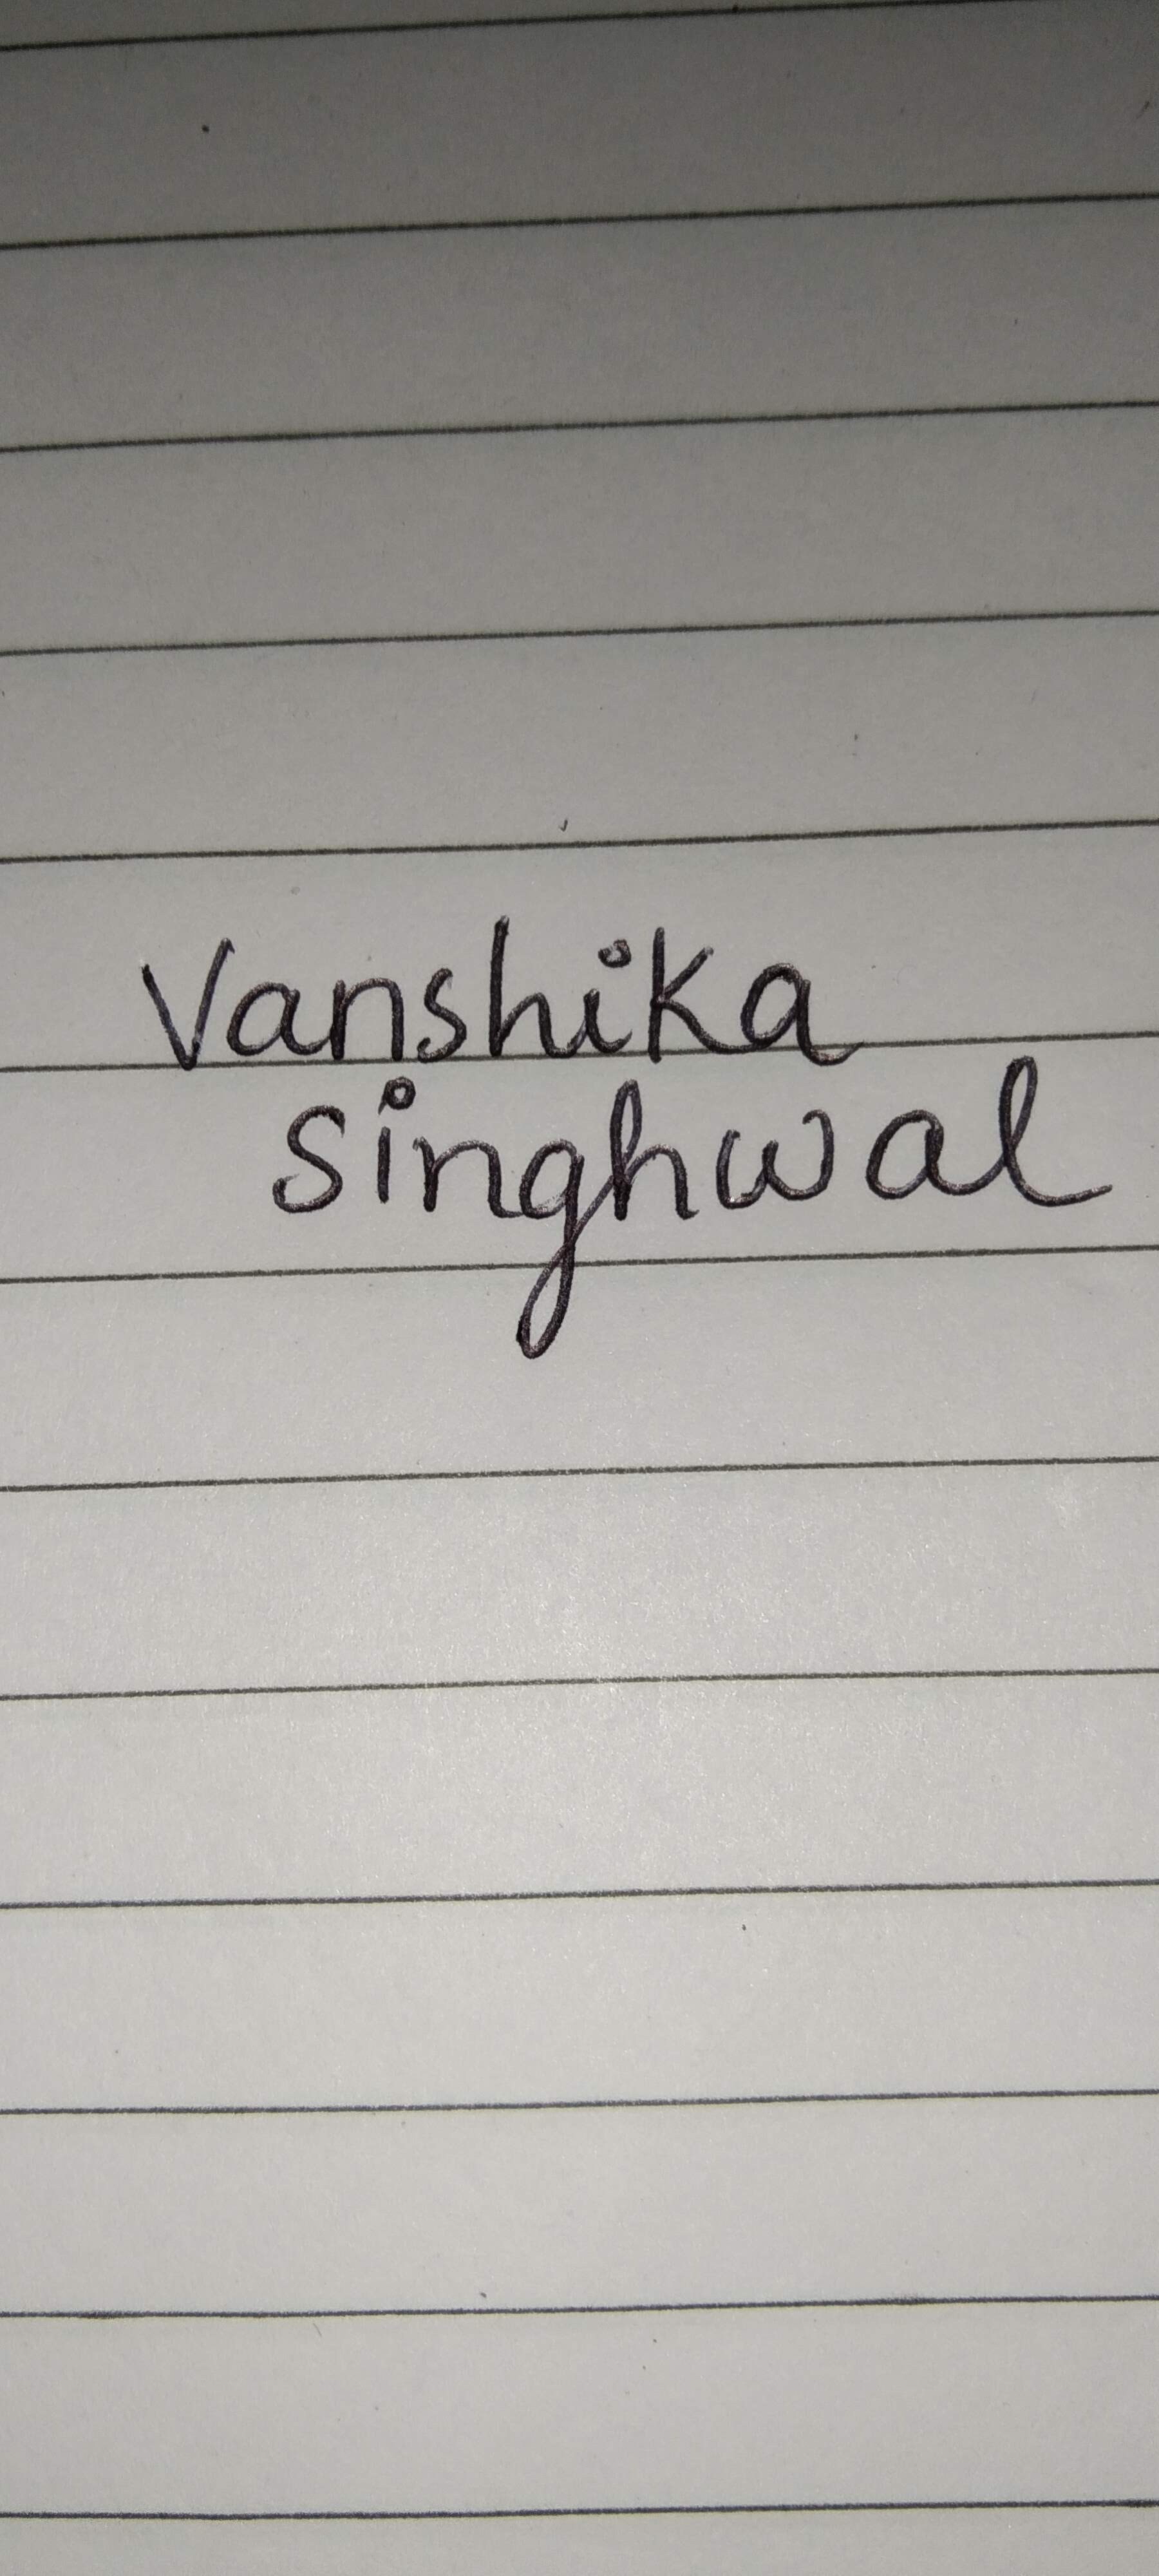 Vanshika
Singhwal